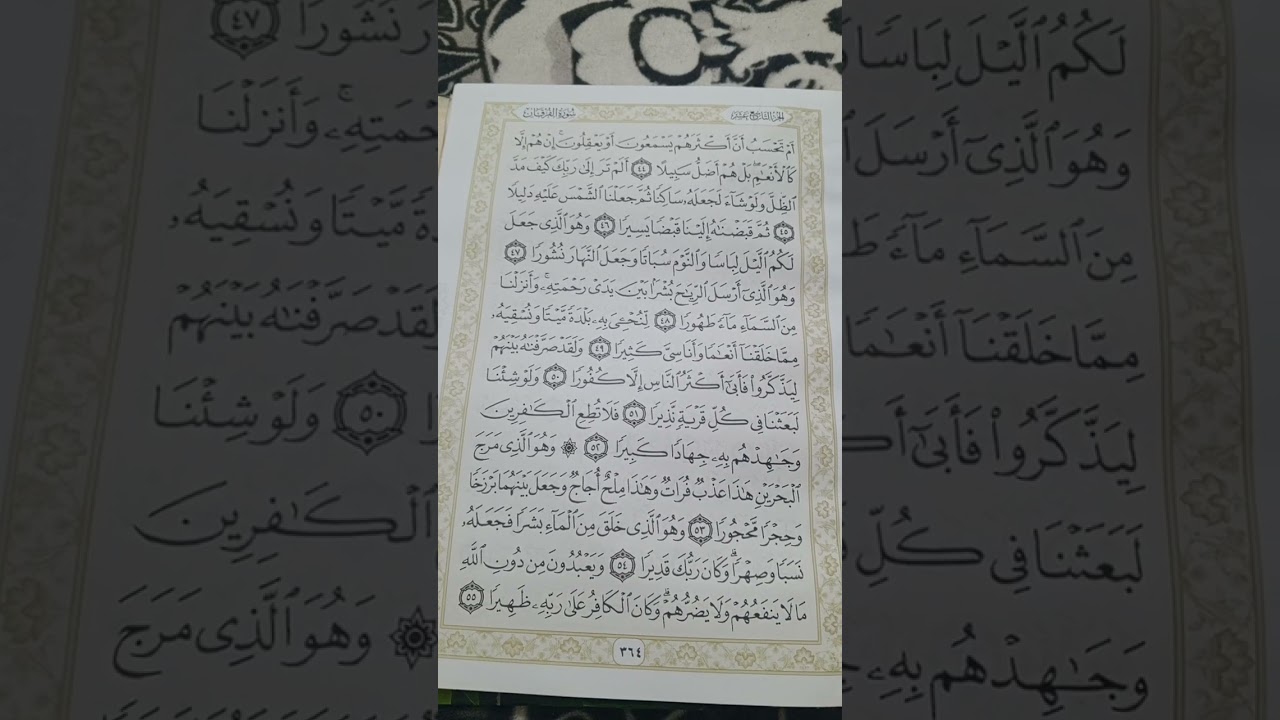 الجزء التاسع عشر
سورة الفرقان
أَمْ تَحْسَبُ أَنَّ أَكْثَرَهُمْ يَسْمَعُونَ أَوْ يَعْقِلُونَ ۚ إِنْ هُمْ إِلَّا
كَٱلْأَنْعَٰمِ ۖ بَلْ هُمْ أَضَلُّ سَبِيلًا ٤٤ أَلَمْ تَرَ إِلَىٰ رَبِّكَ كَيْفَ مَدَّ
ٱلظِّلَّ وَلَوْ شَآءَ لَجَعَلَهُۥ سَاكِنًا ثُمَّ جَعَلْنَا ٱلشَّمْسَ عَلَيْهِ دَلِيلًا
٤٥ ثُمَّ قَبَضْنَٰهُ إِلَيْنَا قَبْضًا يَسِيرًا ٤٦ وَهُوَ ٱلَّذِى جَعَلَ
لَكُمُ ٱلَّيْلَ لِبَاسًا وَٱلنَّوْمَ سُبَاتًا وَجَعَلَ ٱلنَّهَارَ نُشُورًا ٤٧
وَهُوَ ٱلَّذِىٓ أَرْسَلَ ٱلرِّيَٰحَ بُشْرًۢا بَيْنَ يَدَىْ رَحْمَتِهِۦ ۚ وَأَنزَلْنَا
مِنَ ٱلسَّمَآءِ مَآءً طَهُورًا ٤٨ لِّنُحْـِۧىَ بِهِۦ بَلْدَةً مَّيْتًا وَنُسْقِيَهُۥ
مِمَّا خَلَقْنَآ أَنْعَٰمًا وَأَنَاسِىَّ كَثِيرًا ٤٩ وَلَقَدْ صَرَّفْنَٰهُ بَيْنَهُمْ
لِيَذَّكَّرُوا۟ فَأَبَىٰٓ أَكْثَرُ ٱلنَّاسِ إِلَّا كُفُورًا ٥٠ وَلَوْ شِئْنَا
لَبَعَثْنَا فِى كُلِّ قَرْيَةٍ نَّذِيرًا ٥١ فَلَا تُطِعِ ٱلْكَٰفِرِينَ
وَجَٰهِدْهُم بِهِۦ جِهَادًا كَبِيرًا ٥٢ ۞ وَهُوَ ٱلَّذِى مَرَجَ
ٱلْبَحْرَيْنِ هَٰذَا عَذْبٌ فُرَاتٌ وَهَٰذَا مِلْحٌ أُجَاجٌ وَجَعَلَ بَيْنَهُمَا بَرْزَخًا
وَحِجْرًا مَّحْجُورًا ٥٣ وَهُوَ ٱلَّذِى خَلَقَ مِنَ ٱلْمَآءِ بَشَرًا فَجَعَلَهُۥ
نَسَبًا وَصِهْرًا ۗ وَكَانَ رَبُّكَ قَدِيرًا ٥٤ وَيَعْبُدُونَ مِن دُونِ ٱللَّهِ
مَا لَا يَنفَعُهُمْ وَلَا يَضُرُّهُمْ ۗ وَكَانَ ٱلْكَافِرُ عَلَىٰ رَبِّهِۦ ظَهِيرًا ٥٥
٣٦٤